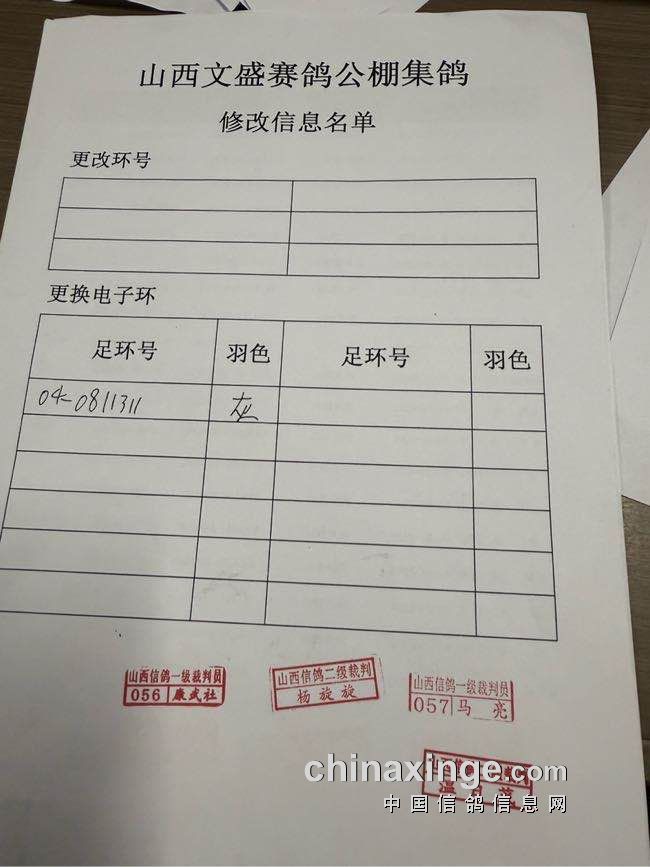 山西文盛赛鸽公棚集鸽
修改信息名单
更改环号
更换电子环
足环号 羽色 足环号 羽色
04-0811311 灰
山西信鸽一级裁判员
056 康武社
山西信鸽二级裁判
杨旋旋
山西信鸽一级裁判员
057 马亮
chinaxinge.com
中国信鸽信息网